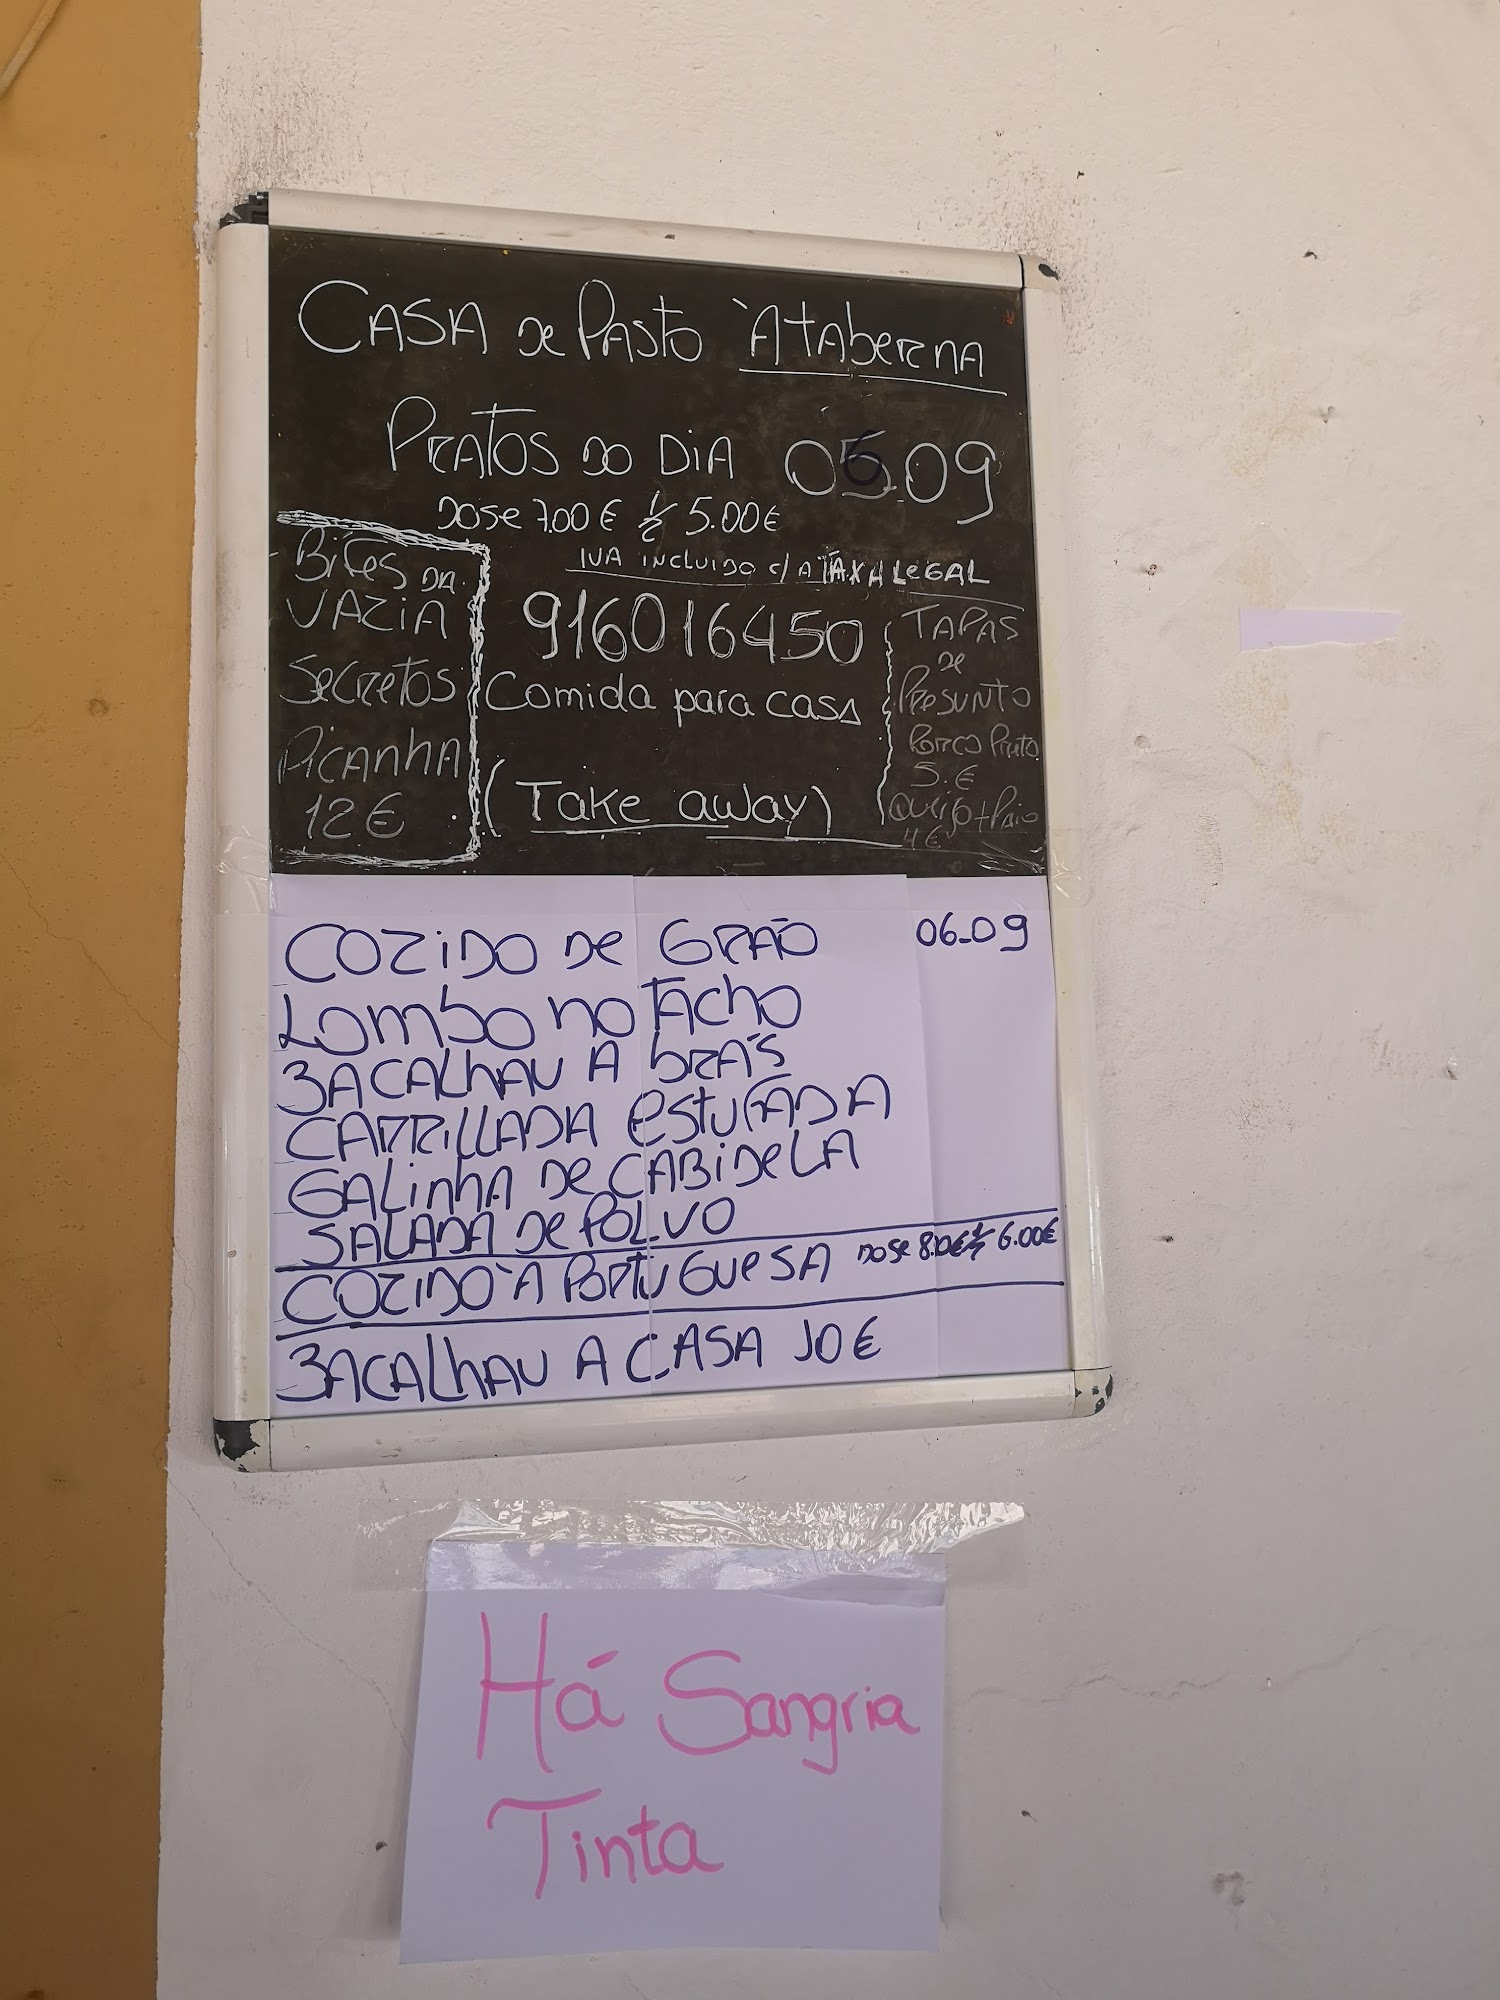 CASA de PASTO `A TABERNA
PRATOS DO DIA 06.09
DOSE 7.00€ ½ 5.00€
IVA INCLUIDO c/ A TAXA LEGAL
BIFES DA
VAZIA
SECRETOS
PICANHA
12€
916016450
Comida para casa
(Take away)
TAPAS
de
PRESUNTO
PORCO PRETO
5.€
QUEIJO+PAIO
4€
COZIDO DE GRÃO 06-09
LOMBO NO TACHO
BACALHAU A BRÁS
CARRILLADA ESTUFADA
GALINHA DE CABIDELA
SALADA DE POLVO
COZIDO À PORTUGUESA DOSE 8.00€ ½ 6.00€
BACALHAU A CASA 10€
Há Sangria
Tinta